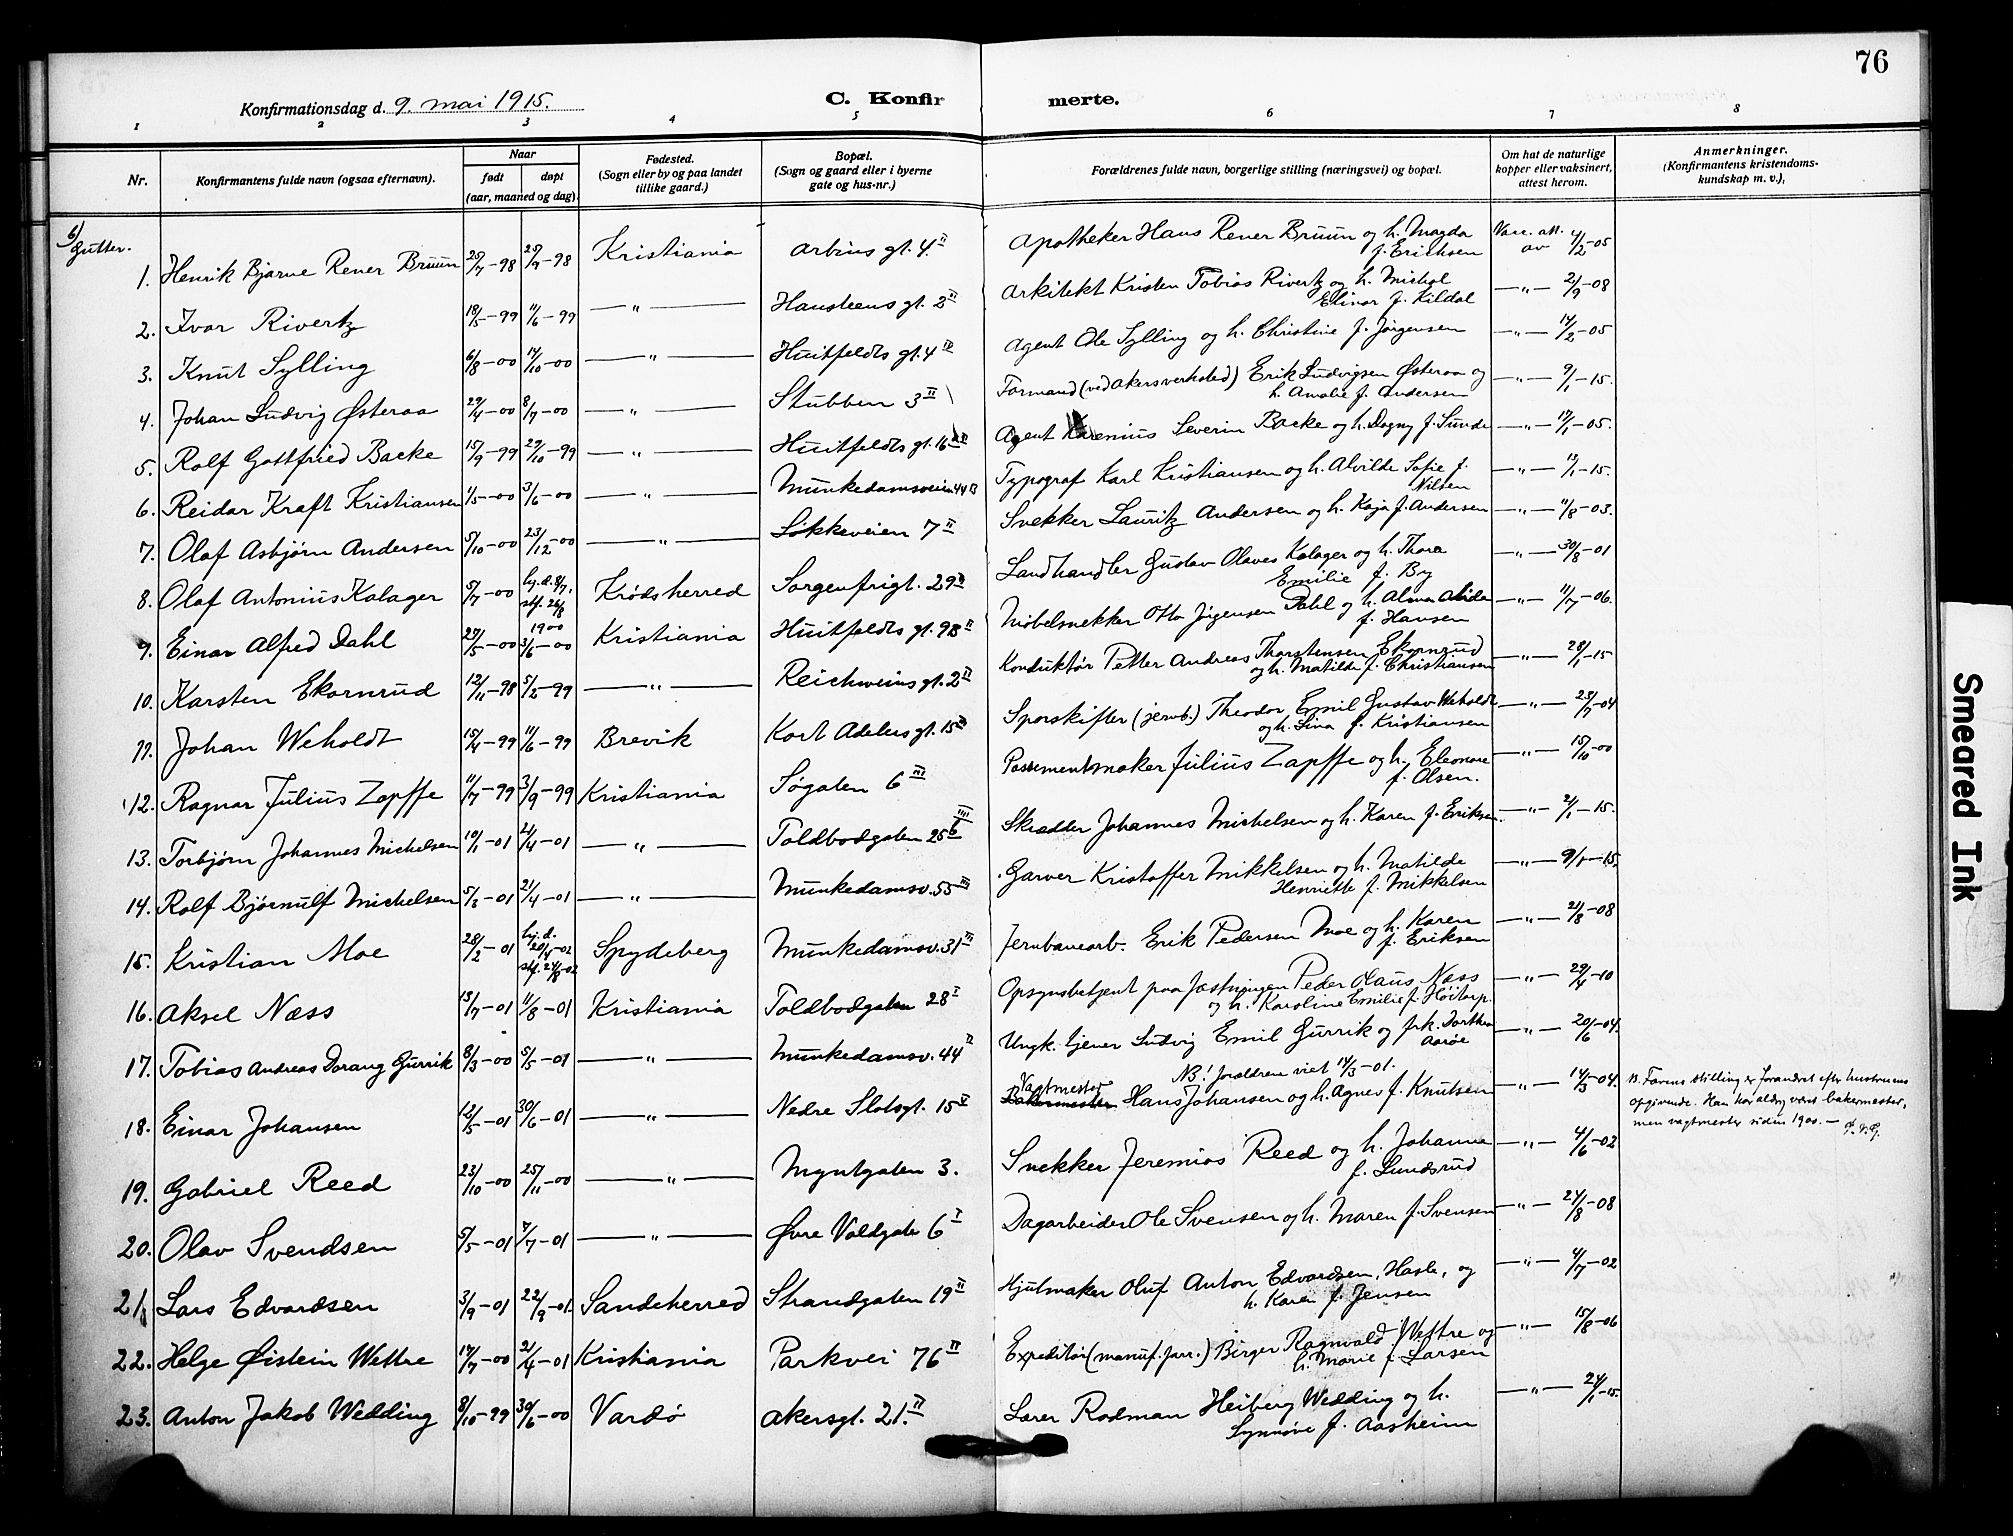 76
Konfirmationsdag d. 9. mai 1915.
C. Konfirmerte.
1 2 3 4 5 6 7 8
Nr.
Konfirmantens fulde navn (ogsaa efternavn).
Naar
født
døpt
(aar, maaned og dag)
Fødested.
(Sogn eller by og paa landet
tillike gaard.)
Bopæl.
(Sogn og gaard eller i byerne
gate og hus-nr.)
Forældrenes fulde navn, borgerlige stilling (næringsvei) og bopæl.
Om hat de naturlige
kopper eller vaksinert,
attest herom.
Anmerkninger.
(Konfirmantens kristendoms-
kundskap m. v.),
Gutter.
1. Henrik Bjarne Rener Bruun 25/7-98 27/9-98 Kristiania Arbins gt. 4 II Apotheker Hans Rener Bruun og h. Magda Vacc. att.
f. Erichsen av 4/2-05
2. Ivar Rivertz 18/5-99 11/6-99 —"— Hansteens gt. 2 II Arkitekt Kristen Tobias Rivertz og h. Michol —"— 2/9-08
Elinor f. Kildal
3. Knut Sylling 6/8-00 14/10-00 —"— Huitfeldts gt. 4 IV Agent Ole Sylling og h. Christine f. Jørgensen —"— 14/2-05
4. Johan Ludvig Østeraa 29/4-00 8/7-00 —"— Stubben 3 II Formand (ved Akersverksted) Erik Ludvigsen Østeraa og —"— 9/1-15.
h. Amalie f. Andersen
5. Rolf Gottfried Backe 15/9-99 29/10-99 —"— Huitfeldts gt. 16 Agent Karenius Severin Backe og h. Dagny f. Sunde —"— 19/1-05.
6. Reidar Kraft Kristiansen 1/5-00 3/6-00 —"— Munkedamsveien 44 Typograf Karl Kristiansen og h. Alvilde Sofie f. —"— 13/1-15.
Nilsen
7. Olaf Asbjørn Andersen 5/10-00 23/12-00 —"— Løkkeveien 7 II Snekker Lauritz Andersen og h. Kaja f. Andersen —"— 11/8-03.
8. Olaf Antonius Kalager 5/7-00 hj.d. 8/7, stf. 26/8 1900 Krødsherred Sorgenfrigt. 29 II Landhandler Gustav Olaves Kalager og h. Thora —"— 30/8-01
Emilie f. By
9. Einar Alfred Dahl 23/5-00 3/6-00 Kristiania Huitfeldts gt. 9B II Møbelsnekker Otto Jørgensen Dahl og h. Alma Alida —"— 11/7-06.
f. Hansen
10. Karsten Ekornrud 12/11-98 5/2-99 —"— Reichweins gt. 2 II Konduktør Petter Andreas Thorstensen Ekornrud —"— 28/1-15
og h. Matilde f. Christiansen
11. Johan Weholdt 15/4-99 11/6-99 Brevik Kort Adelers gt. 15 III Sporskifter (jernb.) Theodor Emil Gustav Weholdt —"— 25/7-04
og h. Lina f. Kristiansen
12. Ragnar Julius Zapffe 11/7-99 3/9-99 Kristiania Søgaten 6 III Possementmaker Julius Zapffe og h. Eleonore —"— 15/10-00
f. Olsen.
13. Torbjørn Johannes Michelsen 10/1-01 21/4-01 —"— Toldbodgaten 25 b IIII Skrædder Johannes Michelsen og h. Karen f. Eriksen. —"— 2/1-15.
14. Rolf Bjørnulf Michelsen 5/3-01 21/4-01 —"— Munkedamsv. 55 III Garver Kristoffer Mikkelsen og h. Matilde —"— 9/1-15.
Henriette f. Mikkelsen
15. Kristian Moe 28/2-01 hj.d. 20/4-02 stf. 24/8-02 Spydeberg Munkedamsv. 31 III Jernbanearb. Erik Pedersen Moe og h. Karen —"— 21/8-08
f. Eriksen
16. Aksel Næss 13/7-01 11/8-01 Kristiania Toldbodgaten 28 I Opsynsbetjent paa fæstningen Peder Olaus Næss —"— 29/4-10
og h. Karoline Emilie f. Høitorp.
17. Tobias Andreas Dorang Gurrik 8/3-00 5/5-01 —"— Munkedamsv. 44 II Ungk. tjener Ludvig Emil Gurrik og frk. Dorthea —"— 20/6-04.
Aarøe
NB! Forældrene viet 14/3-01.
18. Einar Johansen 12/5-01 30/6-01 —"— Nedre Slotsgt. 15 V Vagtmester Bakermester Hans Johansen og h. Agnes f. Knutsen —"— 14/3-04.
N. Farens stilling er forandret efter hustruens
opgivende. Han har aldrig vært bakermester,
men vagtmester siden 1900. —
19. Gabriel Reed 23/10-00 25/11-00 —"— Myntgaten 3. Snekker Jeremias Reed og h. Johanne —"— 4/6-02
f. Lundsrud
20. Olav Svendsen 5/5-01 7/7-01 —"— Øvre Voldgate 6 I Dagarbeider Ole Svensen og h. Maren f. Svensen —"— 24/8-08
21. Lars Edvardsen 3/9-01 22/9-01 Sandeherred Strandgaten 19 II Hjulmaker Oluf Anton Edvardsen, Hasle, og —"— 4/7-02
h. Karen f. Jensen
22. Helge Øistein Wettre 17/7-00 21/4-01 Kristiania Parkvei 76 II Expeditør (manuf. forr.) Birger Ragnvald Wettre og —"— 15/8-06
h. Marie f. Larsen
23. Anton Jakob Wedding 8/10-99 30/6-00 Vardø Akersgt. 21. II Lærer Rodman Heiberg Wedding og h. —"— 24/1-15.
Synnøve f. Aasheim
Smeared Ink